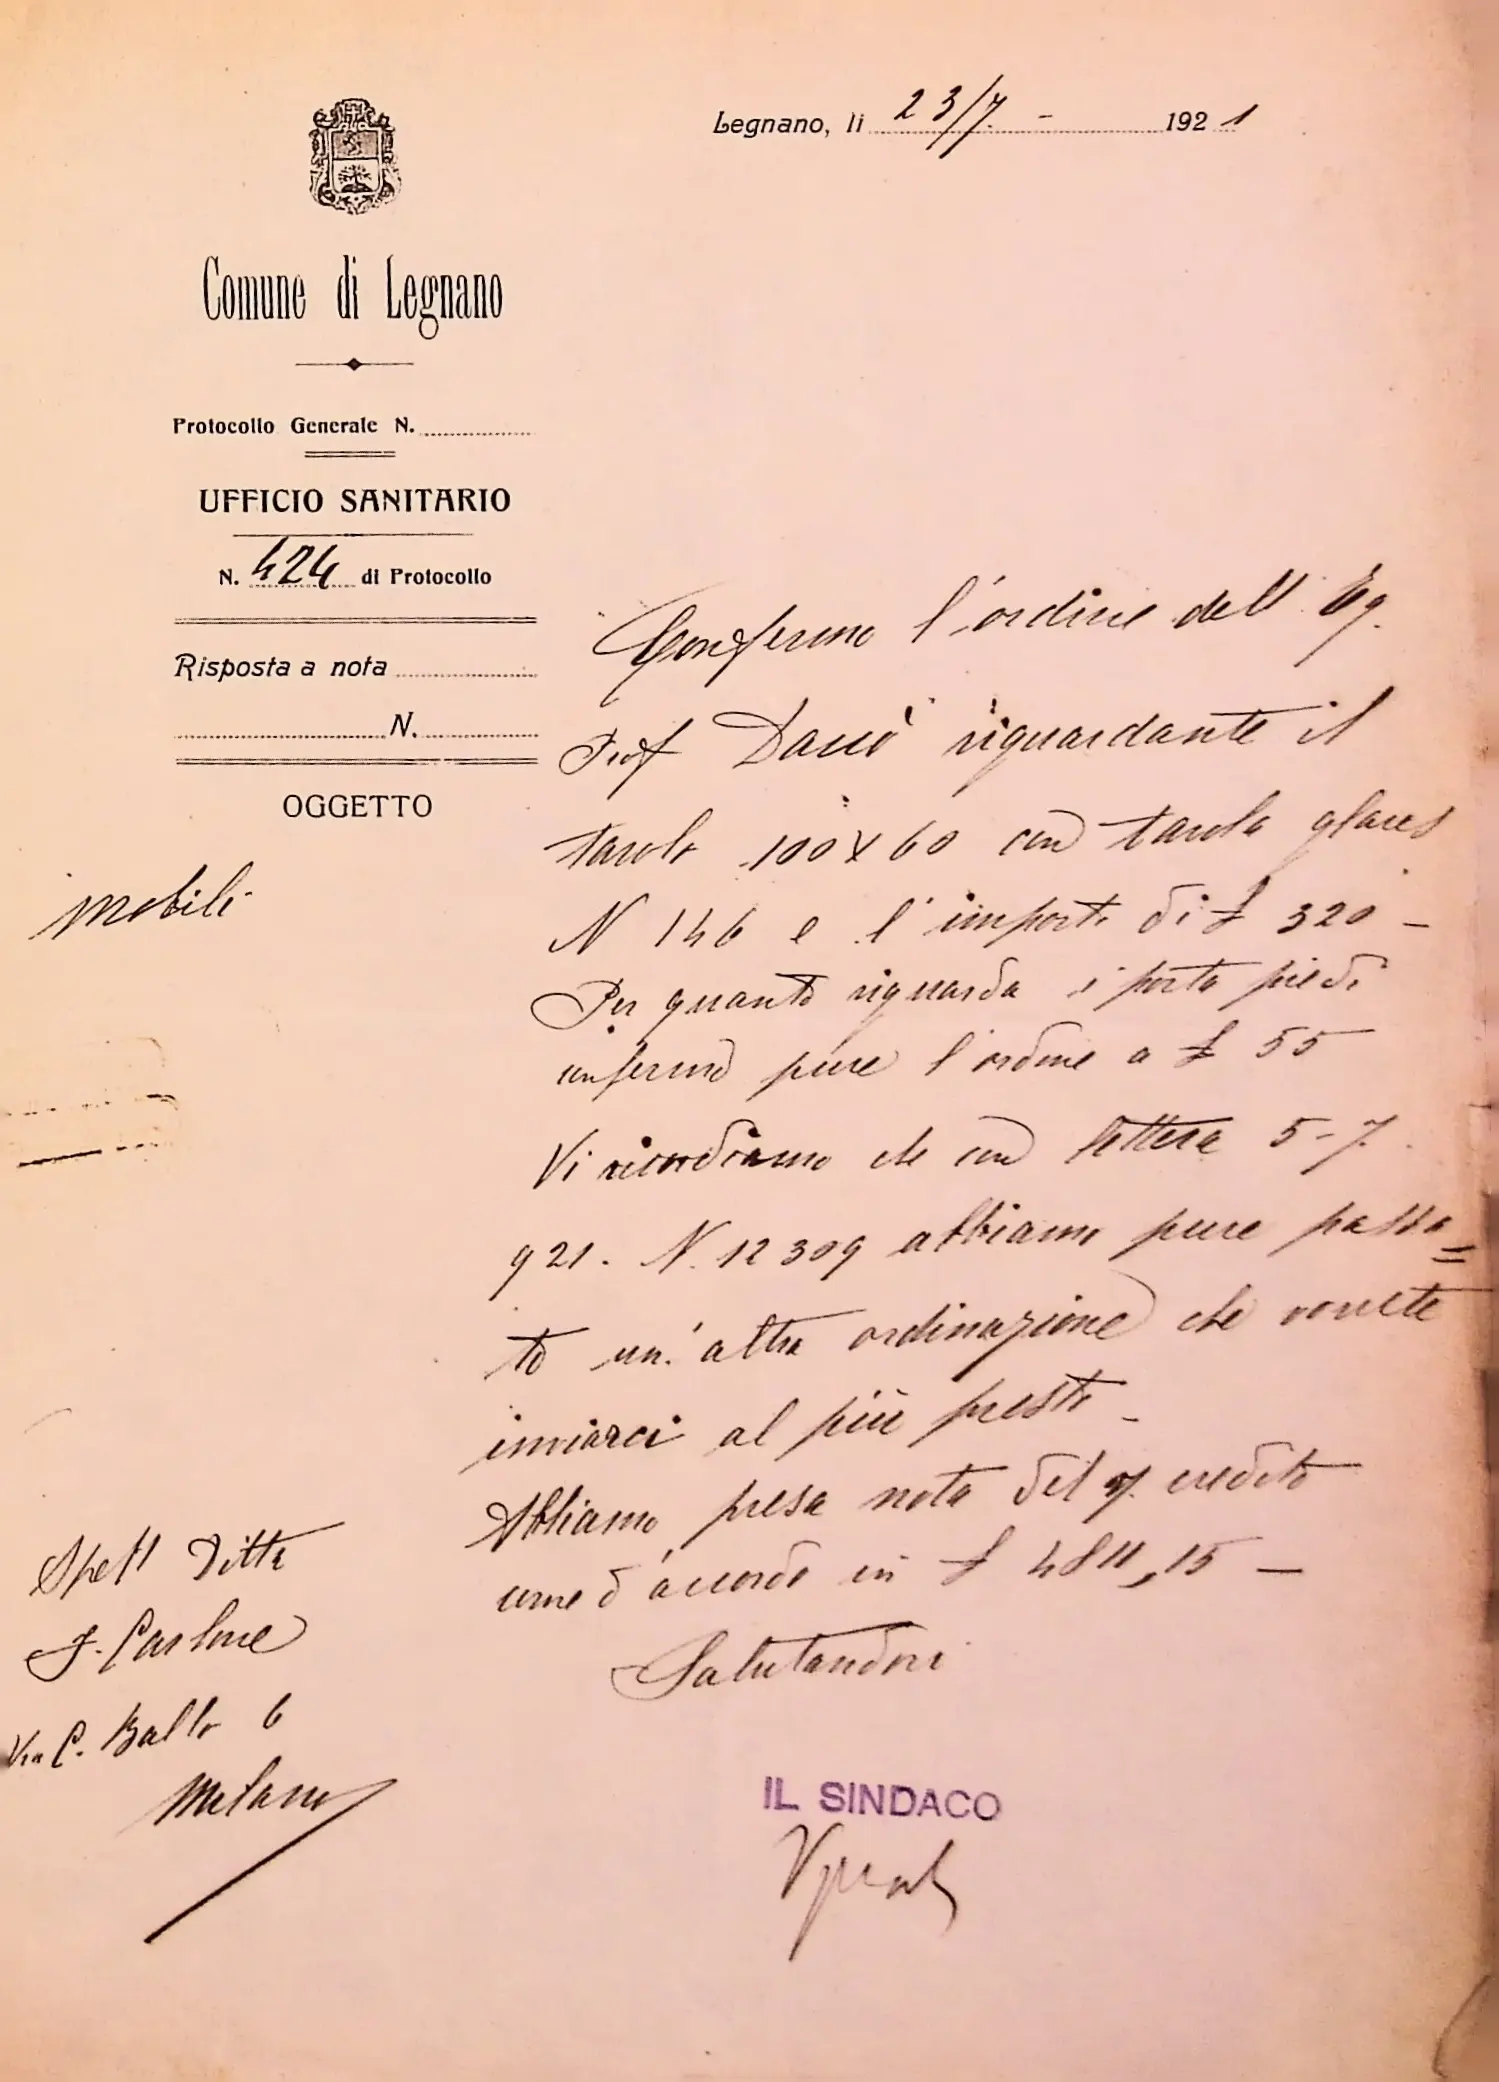 Legnano, li 23/7. - 1921
Comune di Legnano
Protocollo Generale N.
UFFICIO SANITARIO
N. 424 di Protocollo
Risposta a nota
N.
OGGETTO
mobili
Confermo l'ordine dell' Eg.
Prof Daccò riguardante il
tavolo 100 X 60 con tavola
N 146 e l'importo di £ 320 -
Per quanto riguarda i porta piedi
confermo pure l'ordine a £ 55
Vi ricordiamo che con lettera 5-7.
921. N. 12309 abbiamo pure passa=
to un'altra ordinazione che vorrete
inviarci al più presto -
Abbiamo presa nota del credito
come d'accordo in £ 4811,15 -
Salutandovi
Spett Ditta
Via C. Ballo 6
Milano
IL SINDACO